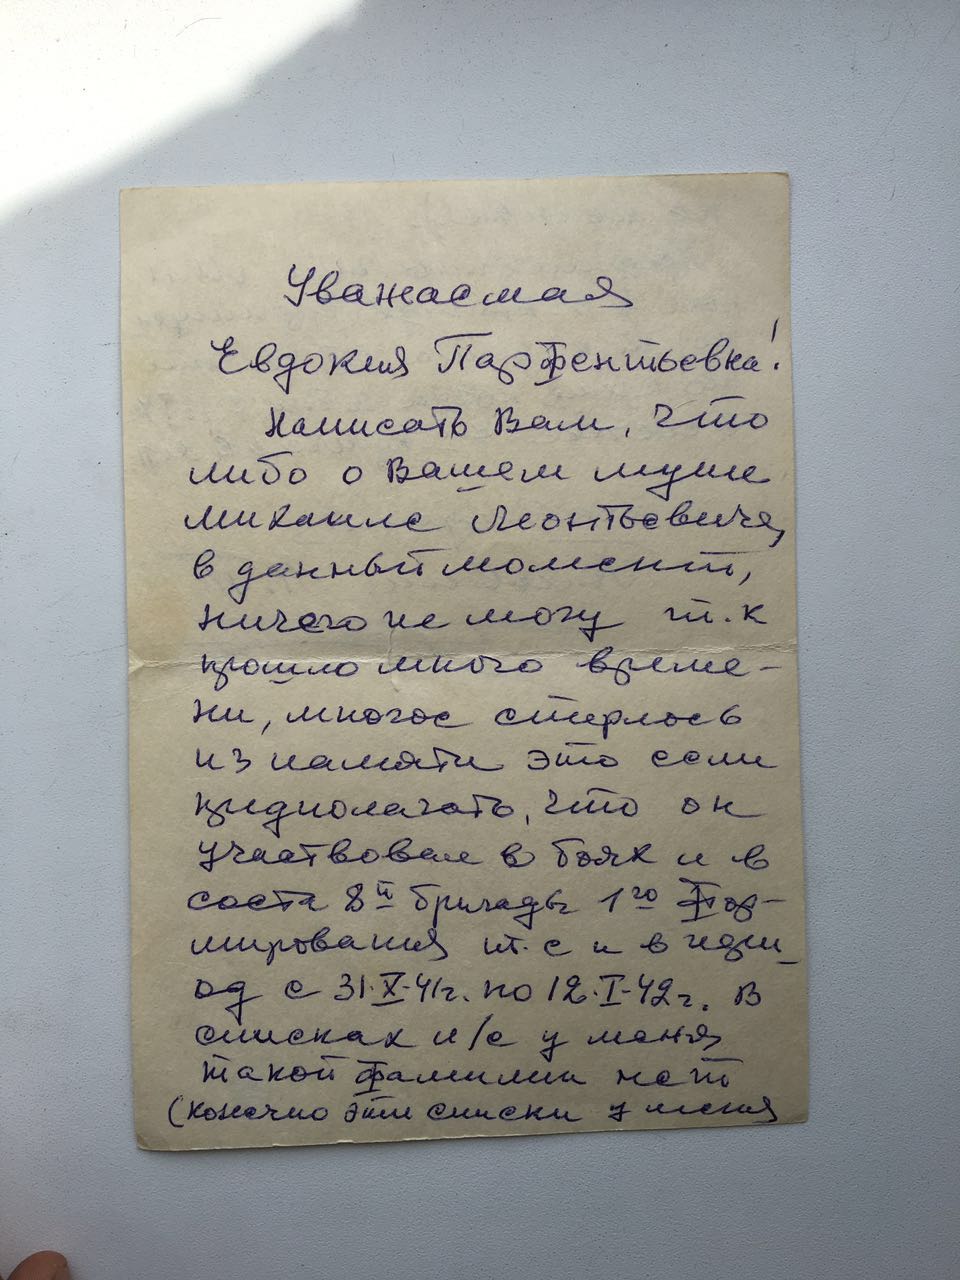 Уважаемая
Евдокия Парфентьевна!
Написать Вам, что
либо о Вашем муже
Михаиле Леонтьевиче,
в данный момент,
ничего не могу т.к
прошло много време-
ни, многое стерлось
из памяти это если
предполагать, что он
участвовал в боях и в
соста 8й бригады 1го Фор-
мирования т.е и в пери_
од с 31.X-41г. по 12.I-42г. В
списках л/с у меня
такой фамилии нет
(конечно эти списки у меня